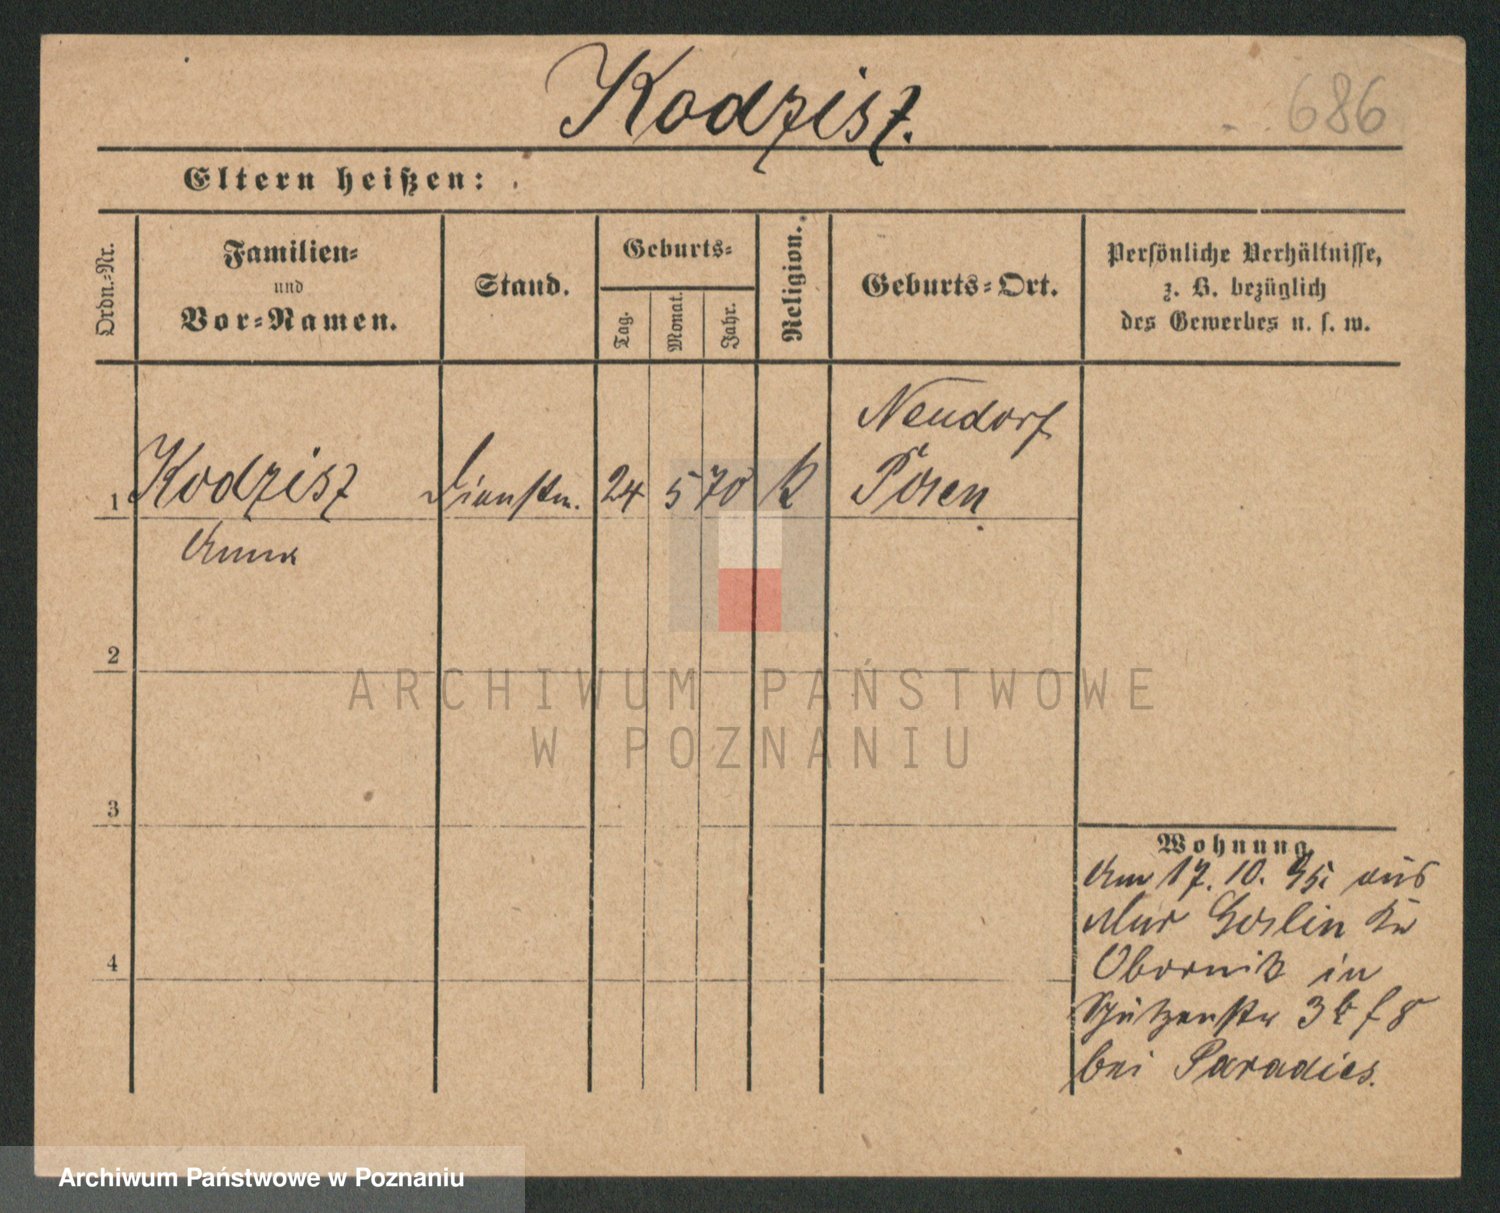 Kodzisz.
686
Eltern heißen:
Ordn.-Nr.
Familien-
und
Vor-Namen.
Stand.
Geburts-
Tag.
Monat.
Jahr.
Religion.
Geburts-Ort.
Persönliche Verhältnisse,
z. B. bezüglich
des Gewerbes u. s. w.
Neudorf
1 Kodzisz Dienstm. 24 5 70 k Posen
Anna
2
3
4
Wohnung
Am 17. 10. 95 aus
Mur Goslin Kr
Obornik in
Schützenstr 3
bei Paradies.
ARCHIWUM PAŃSTWOWE
W POZNANIU
Archiwum Państwowe w Poznaniu